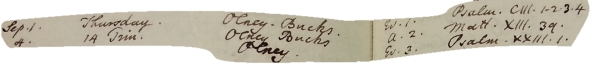 Sep. 1. Thursday. Olney - Bucks. Ev. 1. Psalm. CIII. 1-2-3-4
4. 14 Trin. Olney Bucks a. 2. Matt. XIII. 39.
Olney. Ev. 3. Psalm. XXIII. 1.